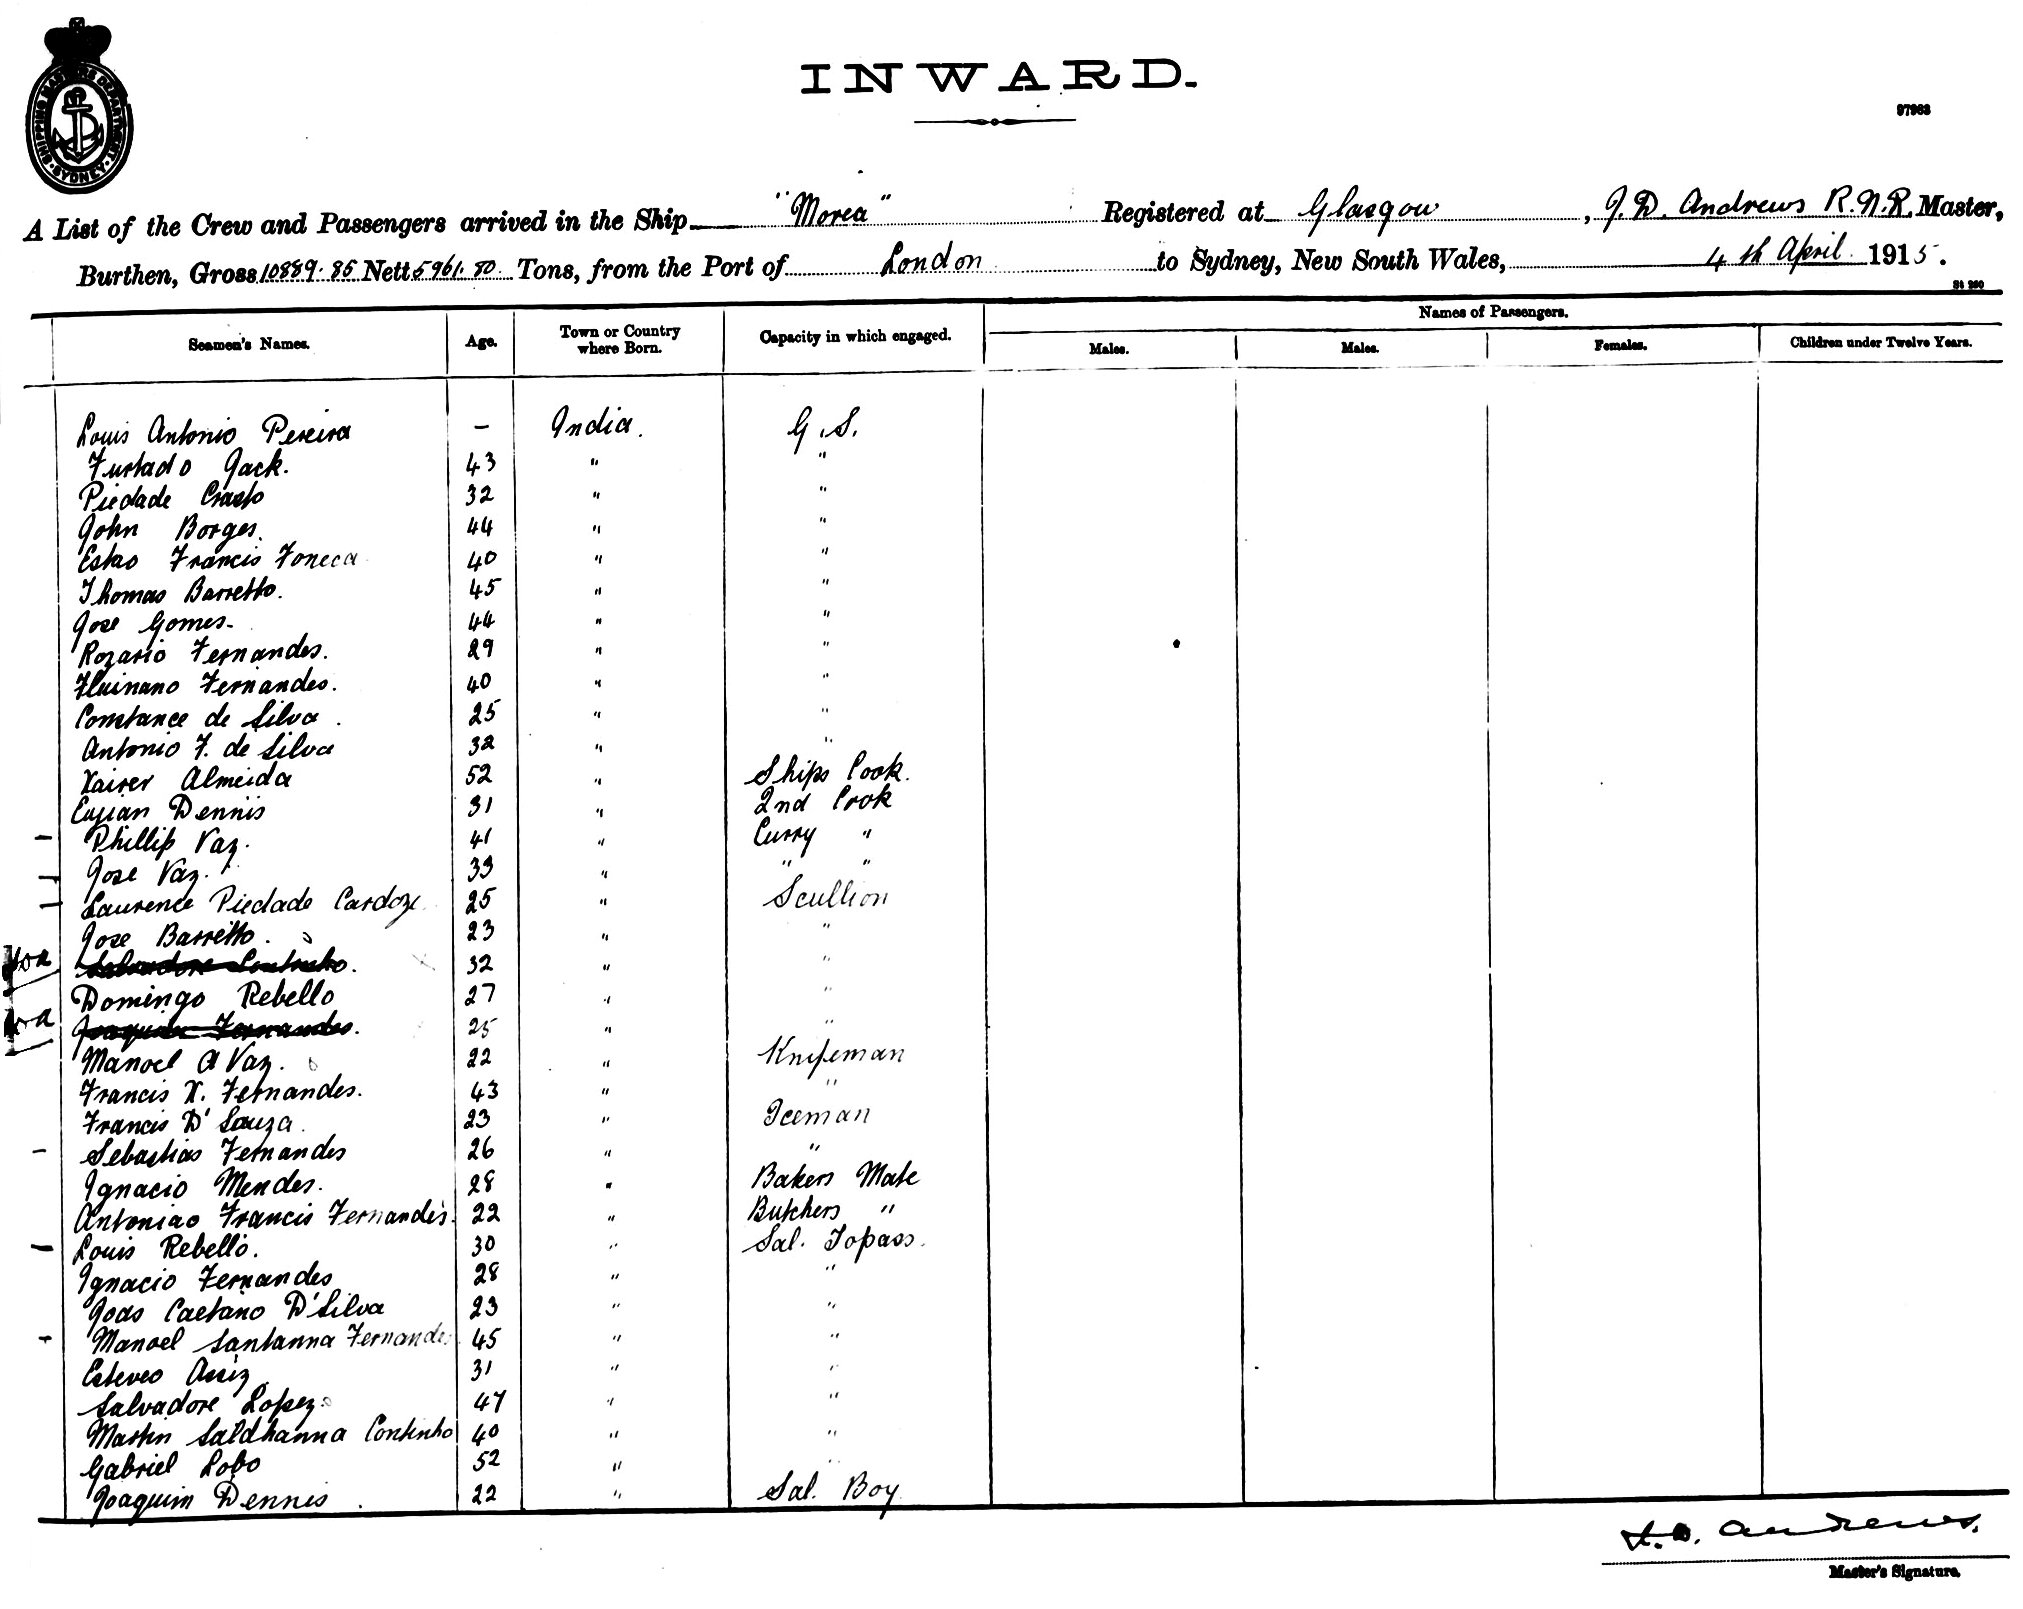 SHIPPING MASTERS DEPARTMENT. SYDNEY
INWARD.
97963
A List of the Crew and Passengers arrived in the Ship "Morea" Registered at Glasgow, J. D. Andrews R.N.R. Master,
Burthen, Gross 10889.85 Nett 5961.80 Tons, from the Port of London to Sydney, New South Wales, 4th April 1915.
St 260
Seamen's Names. Age. Town or Country where Born. Capacity in which engaged. Names of Passengers.
Males. Males. Females. Children under Twelve Years.
Louis Antonio Pereira - India. G.S.
Furtado Jack. 43 " "
Piedade Crasto 32 " "
John Borges. 44 " "
Francis Foneca 40 " "
Thomas Barretto. 45 " "
Jose Gomes. 44 " "
Rozario Fernandes. 29 " "
Fernandes. 40 " "
Constance de Silva. 25 " "
Antonio F. de Silva 32 " "
Xaiver Almeida 52 " Ships Cook.
Dennis 31 " 2nd Cook
- Phillip Vaz. 41 " Curry "
- Jose Vaz. 33 " " "
- Laurence Piedade Cardozo 25 " Scullion
Jose Barretto. 23 " "
Salvadore Continho. 32 " "
Domingo Rebello 27 " "
Joaquim Fernandes. 25 " "
Manoel A Vaz. 22 " Knifeman
Francis X. Fernandes. 43 " "
Francis D'Souza. 23 " Iceman
- Sebastiao Fernandes 26 " "
Ignacio Mendes. 28 " Bakers Mate
Antoniao Francis Fernandes. 22 " Butchers "
- Louis Rebello. 30 " Sal. Topass.
Ignacio Fernandes 28 " "
Joao Caetano D'Silva 23 " "
- Manoel Santanna Fernandes 45 " "
Esteveo Assiz 31 " "
Salvadore Lopez. 47 " "
Martin Saldhanna Continho 40 " "
Gabriel Lobo 52 " "
Joaquim Dennis. 22 " Sal. Boy
J. D. Andrews.
Master's Signature.